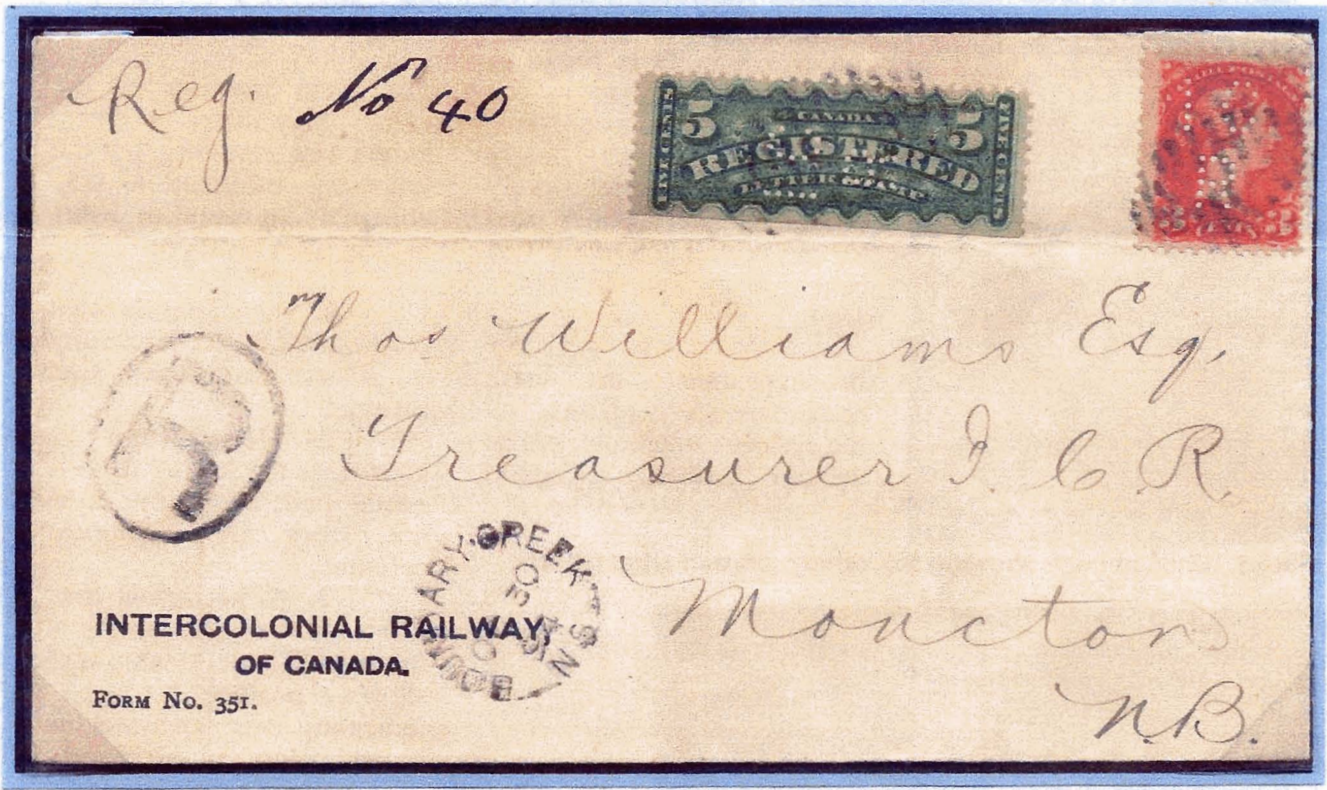 Reg. No 40
5 CANADA 5
REGISTERED
LETTER STAMP
FIVE CENTS
FIVE CENTS
3 CENTS 3
Thos Williams Esq.
Treasurer I. C. R.
Moncton
N.B.
R
BOUNDARY CREEK
N.B
30
INTERCOLONIAL RAILWAY,
OF CANADA.
FORM No. 351.